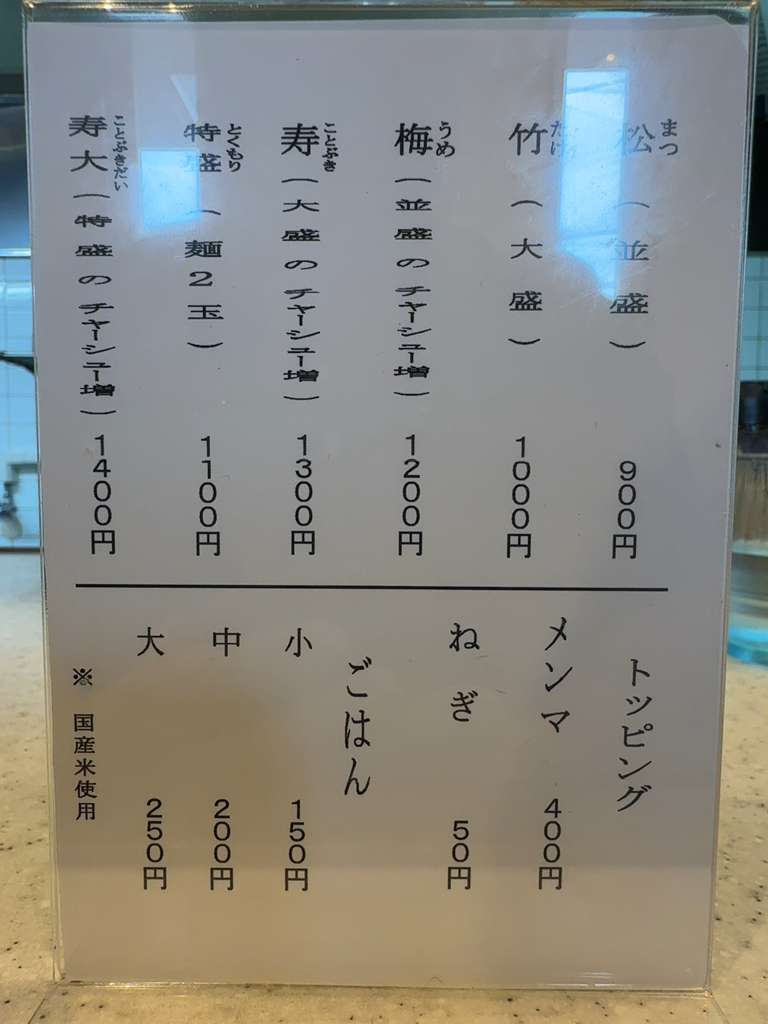 松 まつ （並盛） 900円
竹 たけ （大盛） 1000円
梅 うめ （並盛のチャーシュー増） 1200円
寿 ことぶき （大盛のチャーシュー増） 1300円
特盛 とくもり （麺2玉） 1100円
寿大 ことぶきだい （特盛のチャーシュー増） 1400円
トッピング
メンマ 400円
ねぎ 50円
ごはん
小 150円
中 200円
大 250円
※ 国産米使用